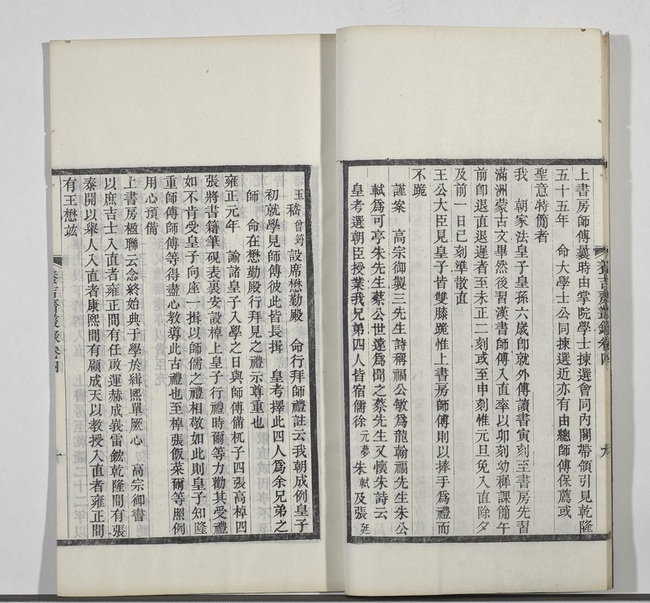 上書房師傅曩時由掌院學士揀選會同内閣帶領引見乾隆
五十五年 命大學士公同揀選近亦有由總師傅保薦或
聖意特簡者
我 朝家法皇子皇孫六歲卽就外傅讀書寅刻至書房先習
滿洲蒙古文畢然後習漢書師傅入直率以卯刻幼稚課簡午
前卽退直退遲者至未正二刻或至申刻惟元旦免入直除夕
及前一日巳刻準散直
王公大臣見皇子皆雙膝跪惟上書房師傅則以捧手爲禮而
不跪
謹案 高宗御製三先生詩稱福公敏爲龍翰福先生朱公
軾爲可亭朱先生蔡公世遠爲聞之蔡先生又懷朱詩云
皇考選朝臣授業我兄弟四人皆宿儒徐元夢朱軾及張廷
玉嵇曾筠設席懋勤殿 命行拜師禮註云我朝成例皇子
初就學見師傅彼此皆長揖 皇考擇此四人爲余兄弟之
師 命在懋勤殿行拜見之禮示尊重也
雍正元年 諭諸皇子入學之日與師傅備杌子四張高棹四
張將書籍筆硯表裏安設棹上皇子行禮時爾等力勸其受禮
如不肯受皇子向座一揖以師儒之禮相敬如此則皇子知隆
重師傅師傅等得盡心教導此古禮也至棹張飯菜爾等照例
用心預備
上書房楹聯云念終始典于學於緝熙單厥心 高宗御書
以庶吉士入直者雍正間有任啟運赫成峩雷鋐乾隆間有張
泰開以舉人入直者康熙間有顧成天以教授入直者雍正間
有王懋竑
養吉齋叢錄卷四
十